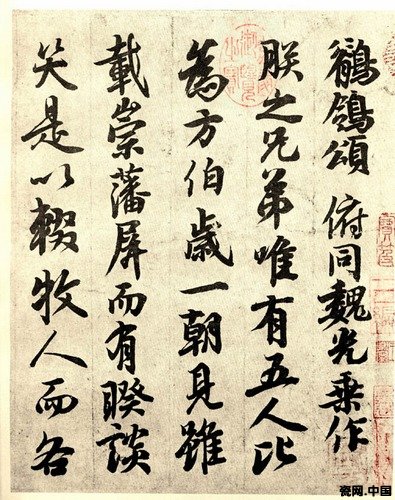 鶺鴒頌 俯同魏光乘作
朕之兄弟唯有五人比
為方伯歲一朝見雖
載崇藩屏而有睽談
笑是以輟牧人而各
瓷网.中国